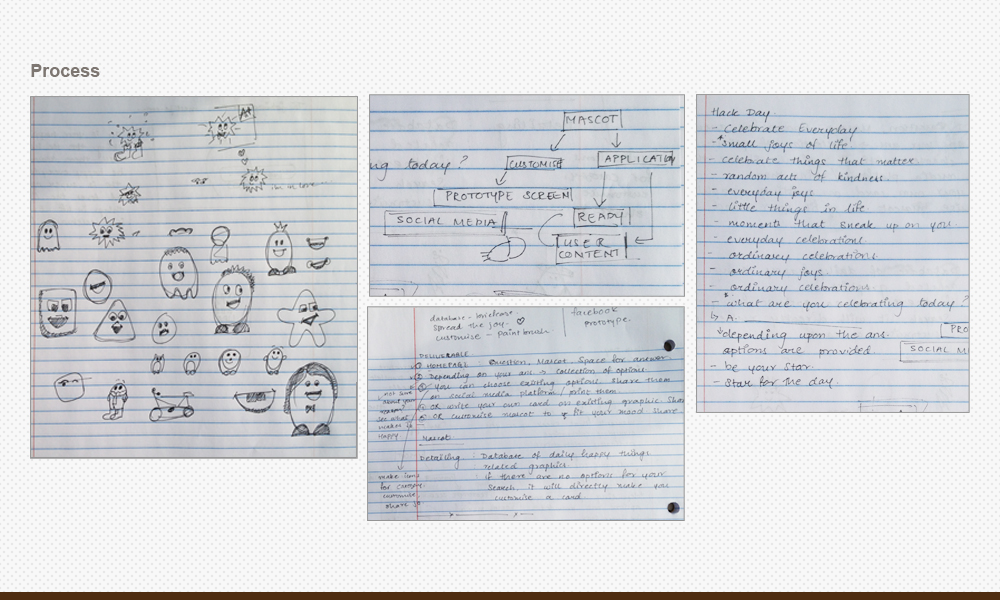 Process
A+
ng today?
MASCOT
CUSTOMISE
APPLICATION
PROTOTYPE SCREEN
SOCIAL MEDIA
READY
USER
CONTENT
database - briefcase
spread the joy.
customise - paintbrush.
facebook
prototype.
DELIVERABLE
① HOMEPAGE Question, Mascot Space for answer
Depending on your ans → collection of options.
you can choose existing options. share them
on social media platform / print them
OR write your own card on existing graphic. Shar
OR customise mascot to fit your mood. Share
Mascot:
Detailing : Database of daily happy things
related graphics.
: if there are no options for your
search, it will directly make you
customise a card
not sure
about your
see what
makes u
happy
make icons
for
customise
share
Hack Day
- Celebrate Everyday
- *small joys of life
- celebrate things that matter
- random acts of kindness.
- everyday joys
- little things in life
- moments that sneak up on you.
- everyday celebrations
- ordinary celebrations
- ordinary joys.
- ordinary celebrations.
- *what are you celebrating today?
↳ A.
depending upon the ans.
options are provided
- be your star.
- star for the day.
PRO
SOCIAL M